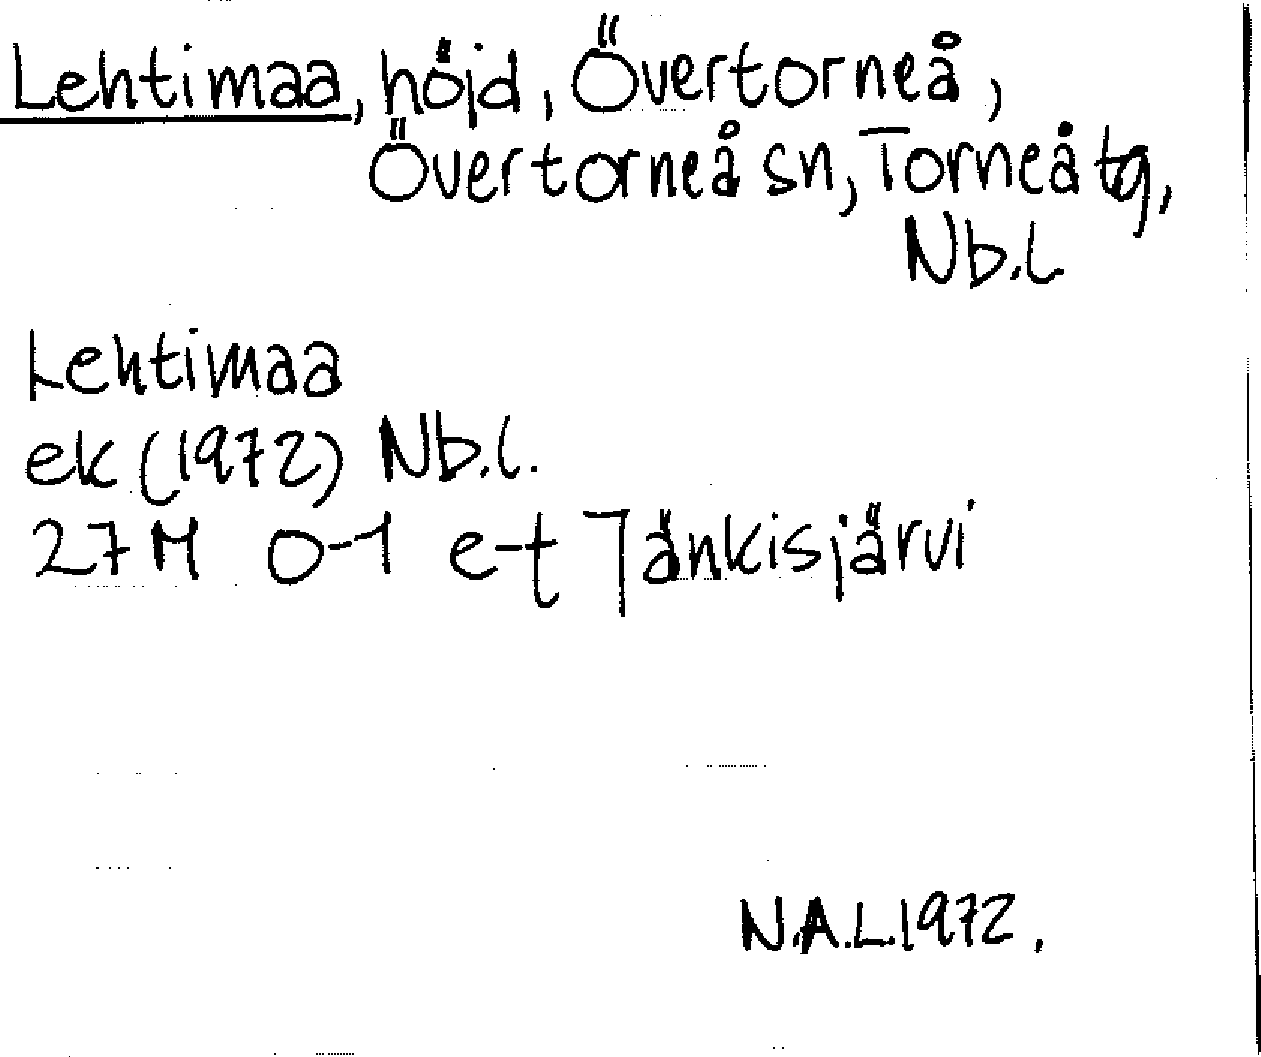 Lehtimaa, höjd, Övertorneå,
Övertorneå sn, Torneå tg,
Nb.l
Lehtimaa
ek (1972) Nb.l.
27M 0-1 e-t Jänkisjärvi
N.A.L.1972.